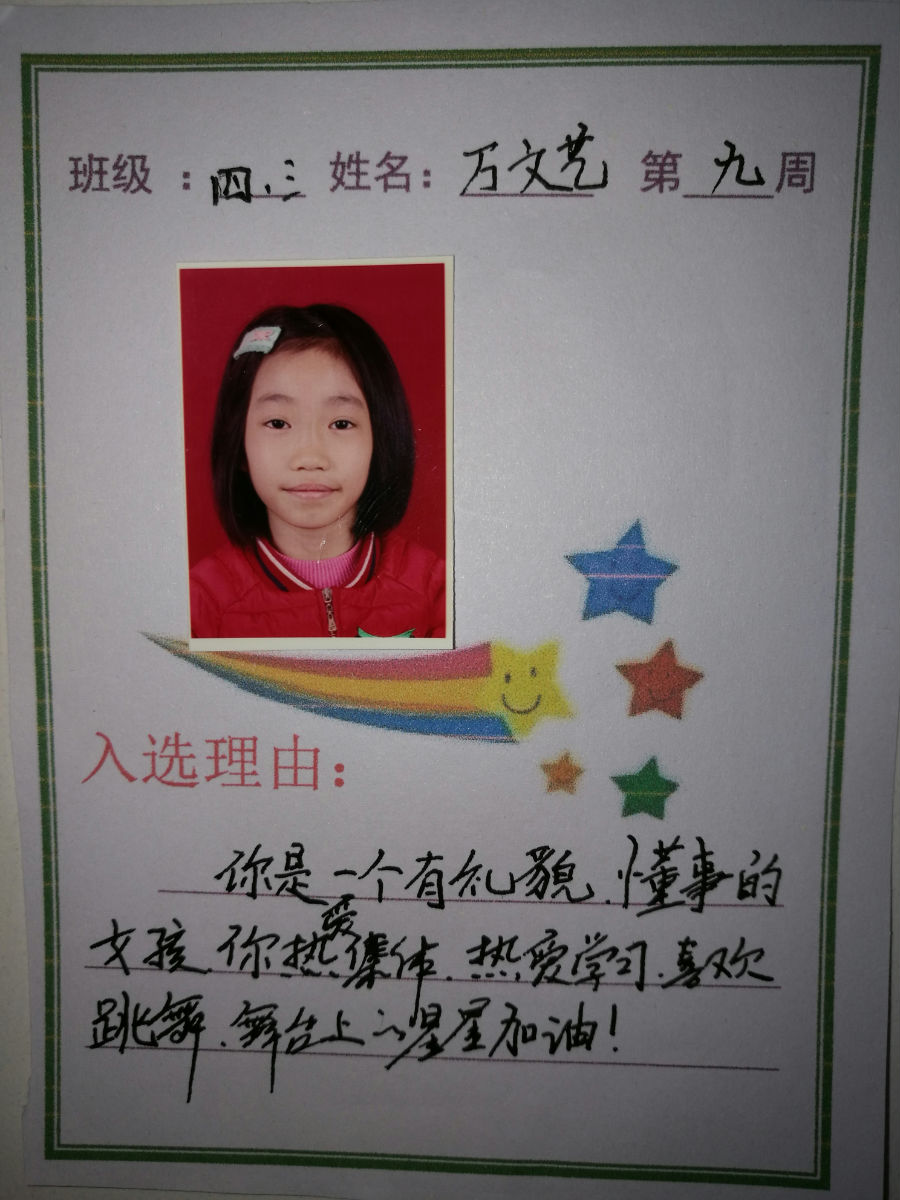 班级：四.三 姓名：万文艺 第九周
入选理由：
你是一个有礼貌.懂事的
女孩.你热爱集体.热爱学习.喜欢
跳舞.舞台上的星星加油！